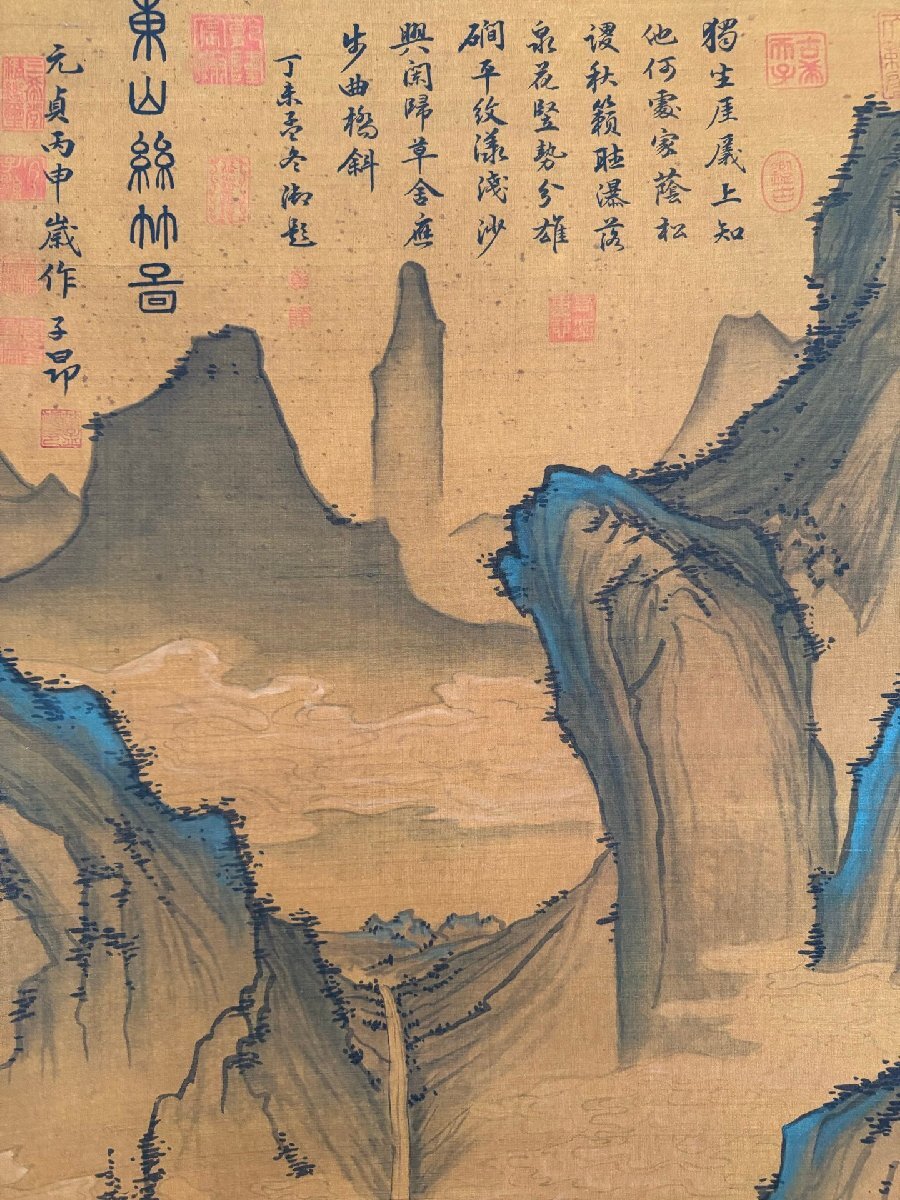 獨坐厓扅上知
他何處家蔭松
謖秋籟聴瀑落
泉花豎勢分雄
磵平紋漾淺沙
興闌歸草舍應
步曲橋斜
丁未孟冬御題
東山絲竹圖
元貞丙申歲作 子昂